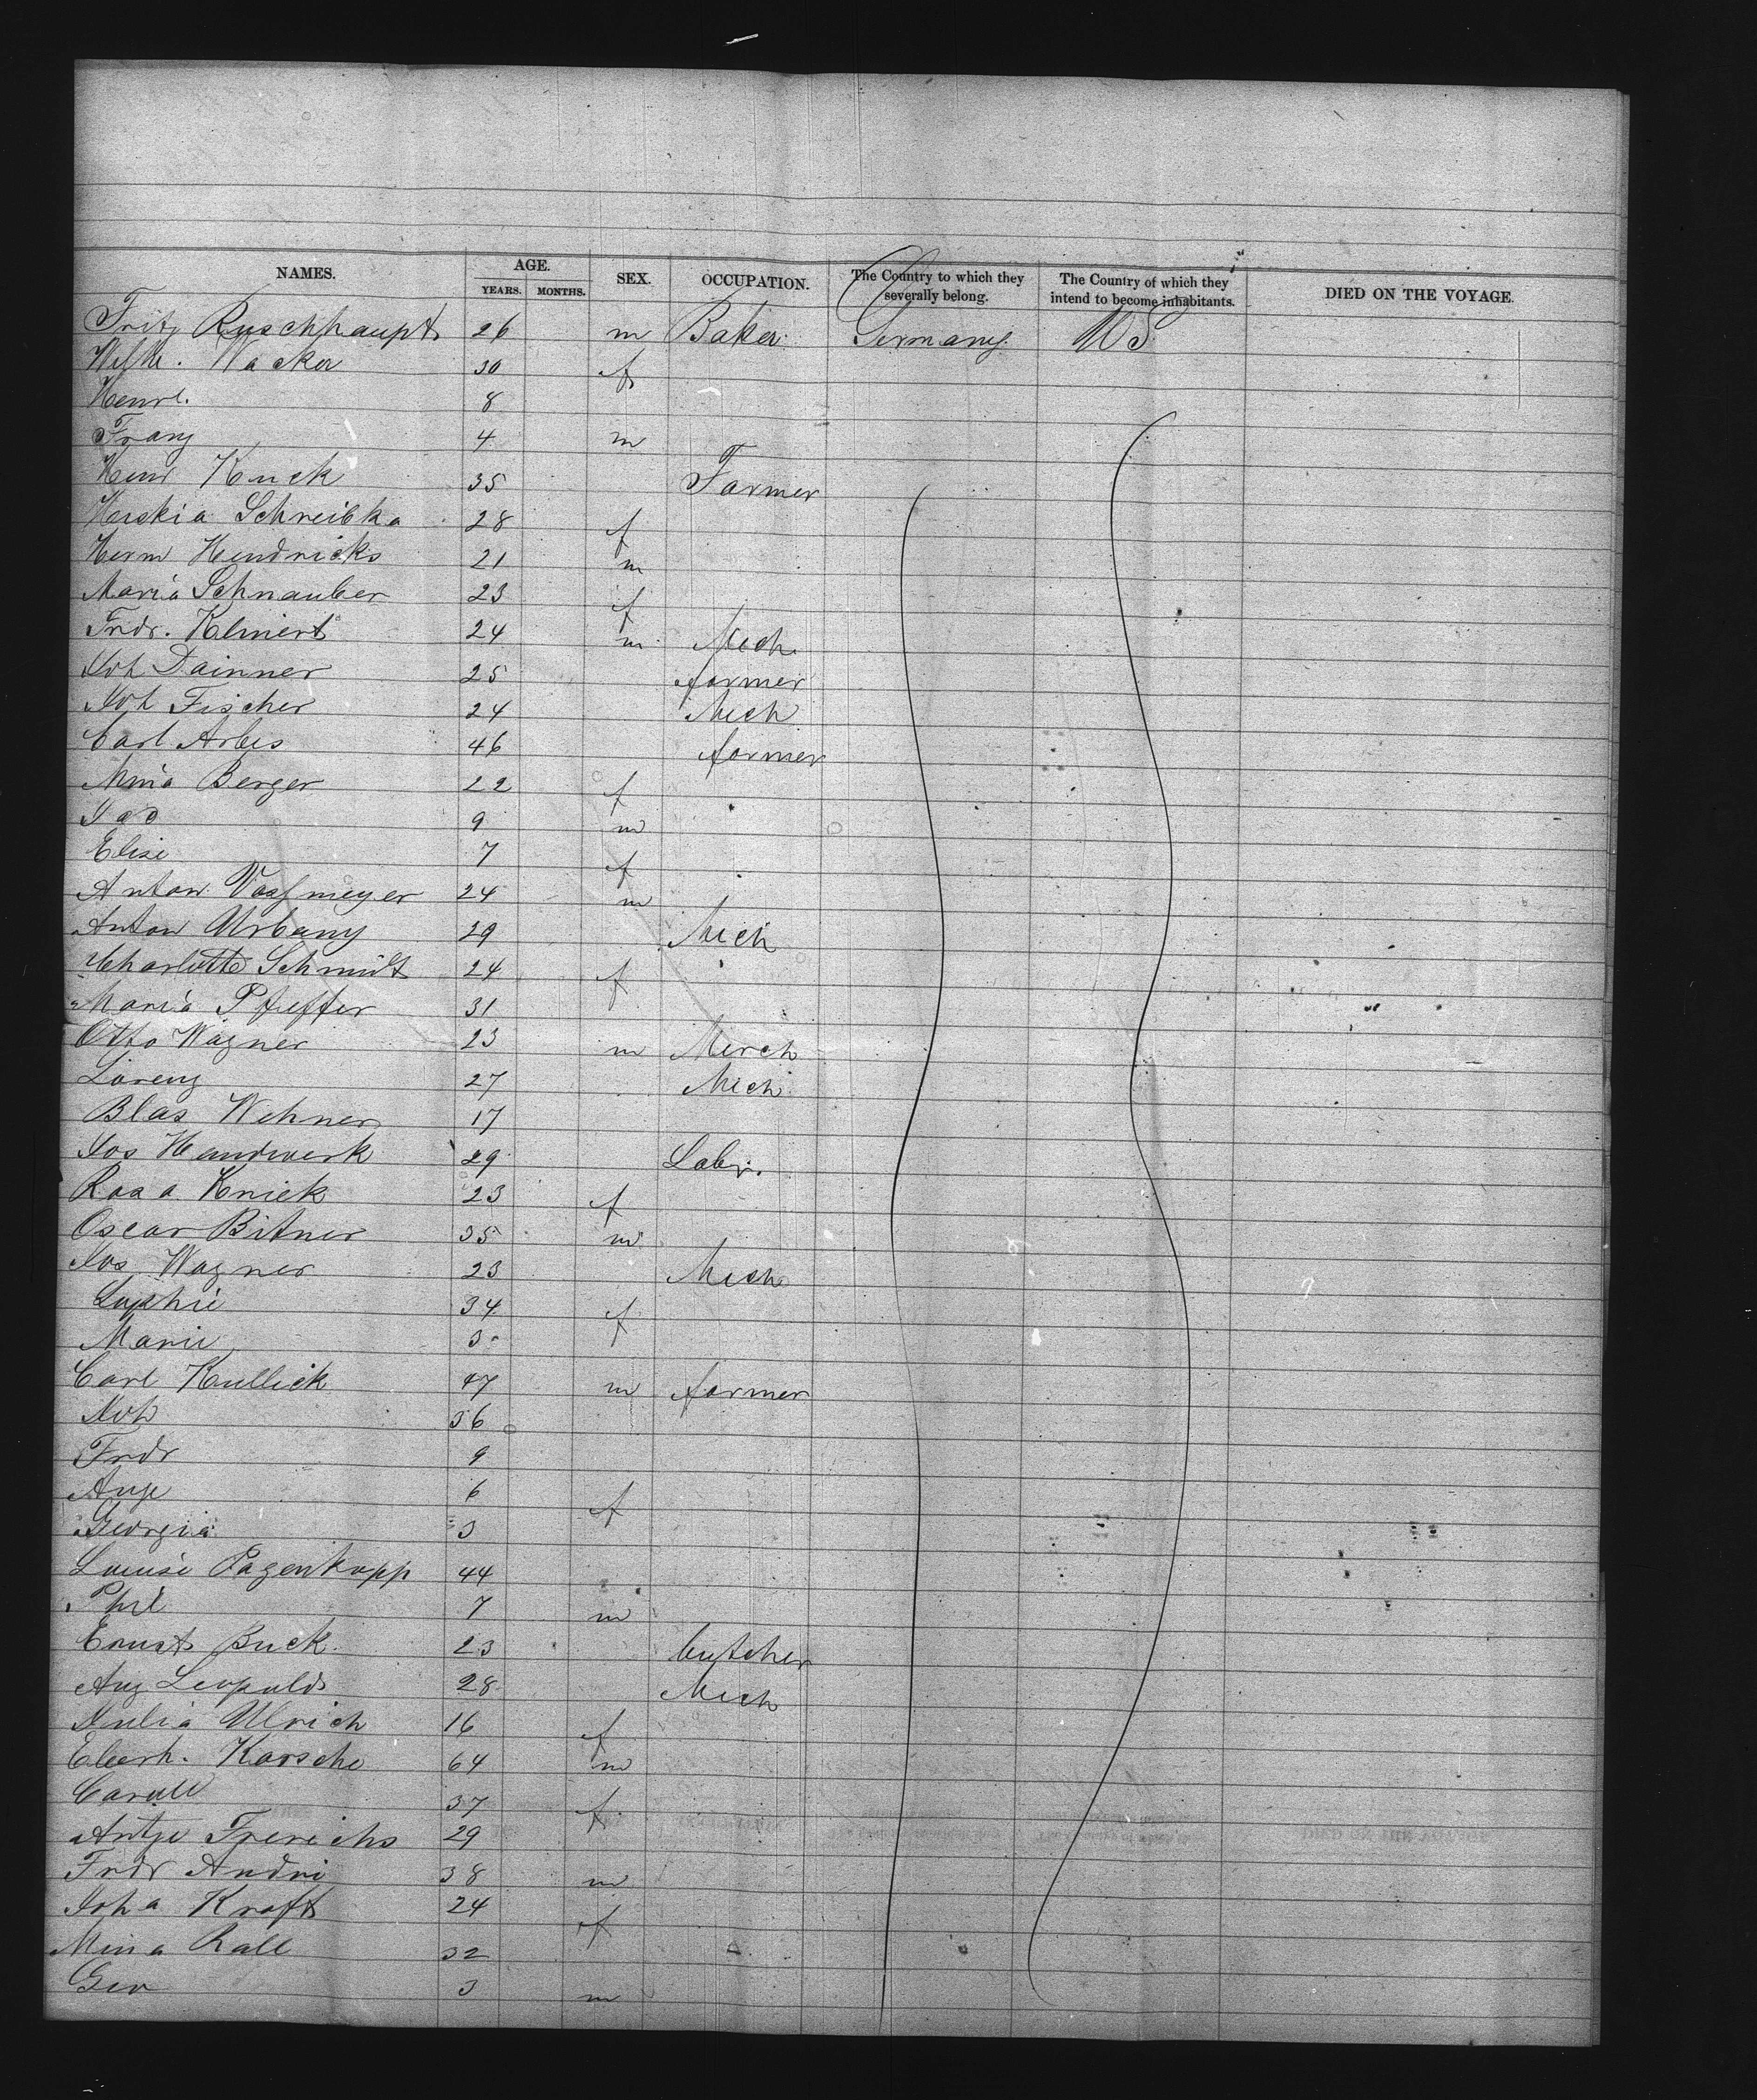 NAMES. AGE. SEX. OCCUPATION. The Country to which they severally belong. The Country of which they intend to become inhabitants. DIED ON THE VOYAGE.
YEARS. MONTHS.
Fritz Ruschhaupt 26 m Baker Germany US
Wilh. Wacker 30 f
Henrt. 8
Franz 4 m
Henr Kuck 35 Farmer
Schreibka 28 f
Herm Hendricks 21 m
Maria Schnauber 23 f
Frdr. Klinert 24 m Mech
Joh Dainner 25 farmer
Joh Fischer 24 Mech
Carl Arbes 46 farmer
Mina Berger 22 f
9 m
Elise 7 f
Anton 24 m
Anton Urbany 29 Mech
Charlotte Schmidt 24 f
Maria Pfeffer 31
Otto Wagner 23 m Merch
Lorenz 27 Mech
Blas Wehner 17
Jos Handwerk 29 Labr.
Rosa Kniek 23 f
Oscar Bitner 35 m
Jos Wagner 23 Mech
Sophie 34 f
Marie 3
Carl Kullick 47 m farmer
Joh 36
Frdr 9
Auge 6 f
Georgia 3
Louise Pagenkopp 44
Phil 7 m
Ernst Buck 23 butcher
Aug Leopold 28 Mech
Julia Ulrich 16 f
Eberh. Karsche 64 m
Caroll 37 f
Antje Frerichs 29
Frdr Andri 38 m
Joha Kraft 24 f
Mina Rall 32
Geo 3 m